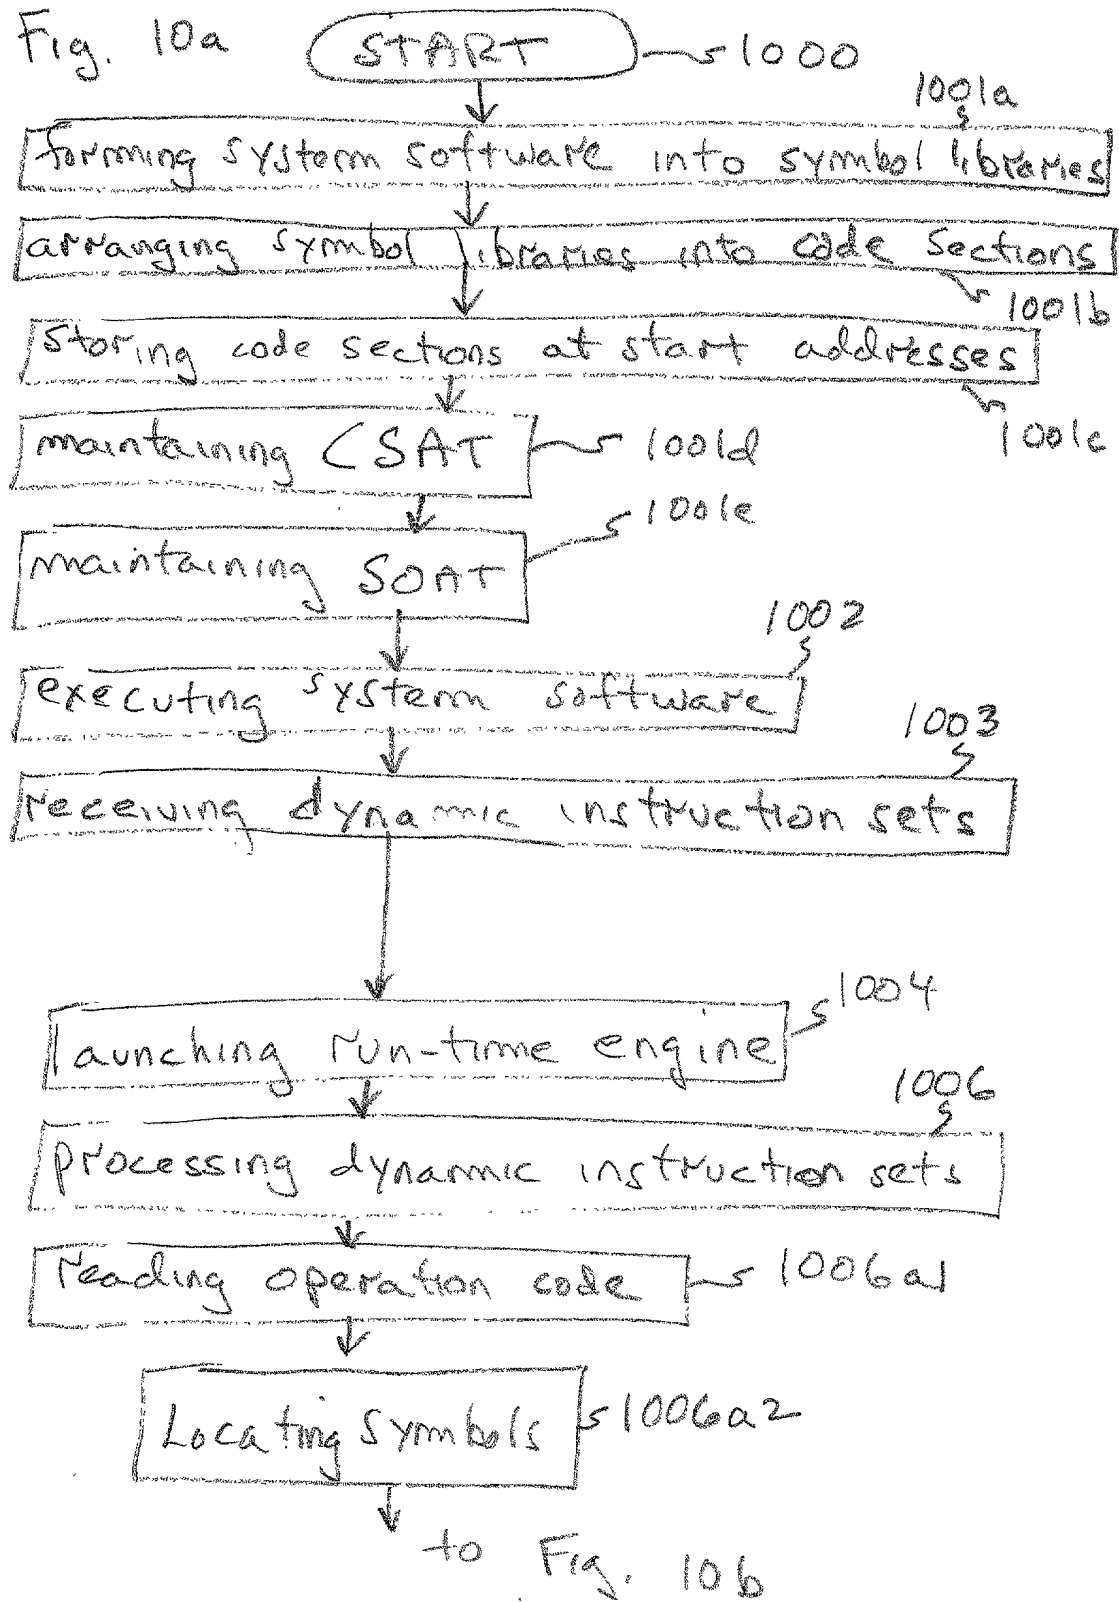 Fig. 10a
START
1000
1001a
forming system software into symbol libraries
arranging symbol libraries into code sections
1001b
storing code sections at start addresses
1001c
maintaining CSAT
1001d
1001e
maintaining SOAT
1002
executing system software
1003
receiving dynamic instruction sets
1004
launching run-time engine
1006
processing dynamic instruction sets
reading operation code
1006a1
Locating symbols
1006a2
to Fig. 10b